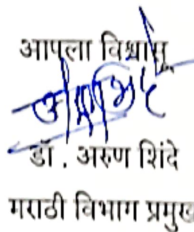 आपला विश्वासू
डॉ. अरुण शिंदे
मराठी विभाग प्रमुख